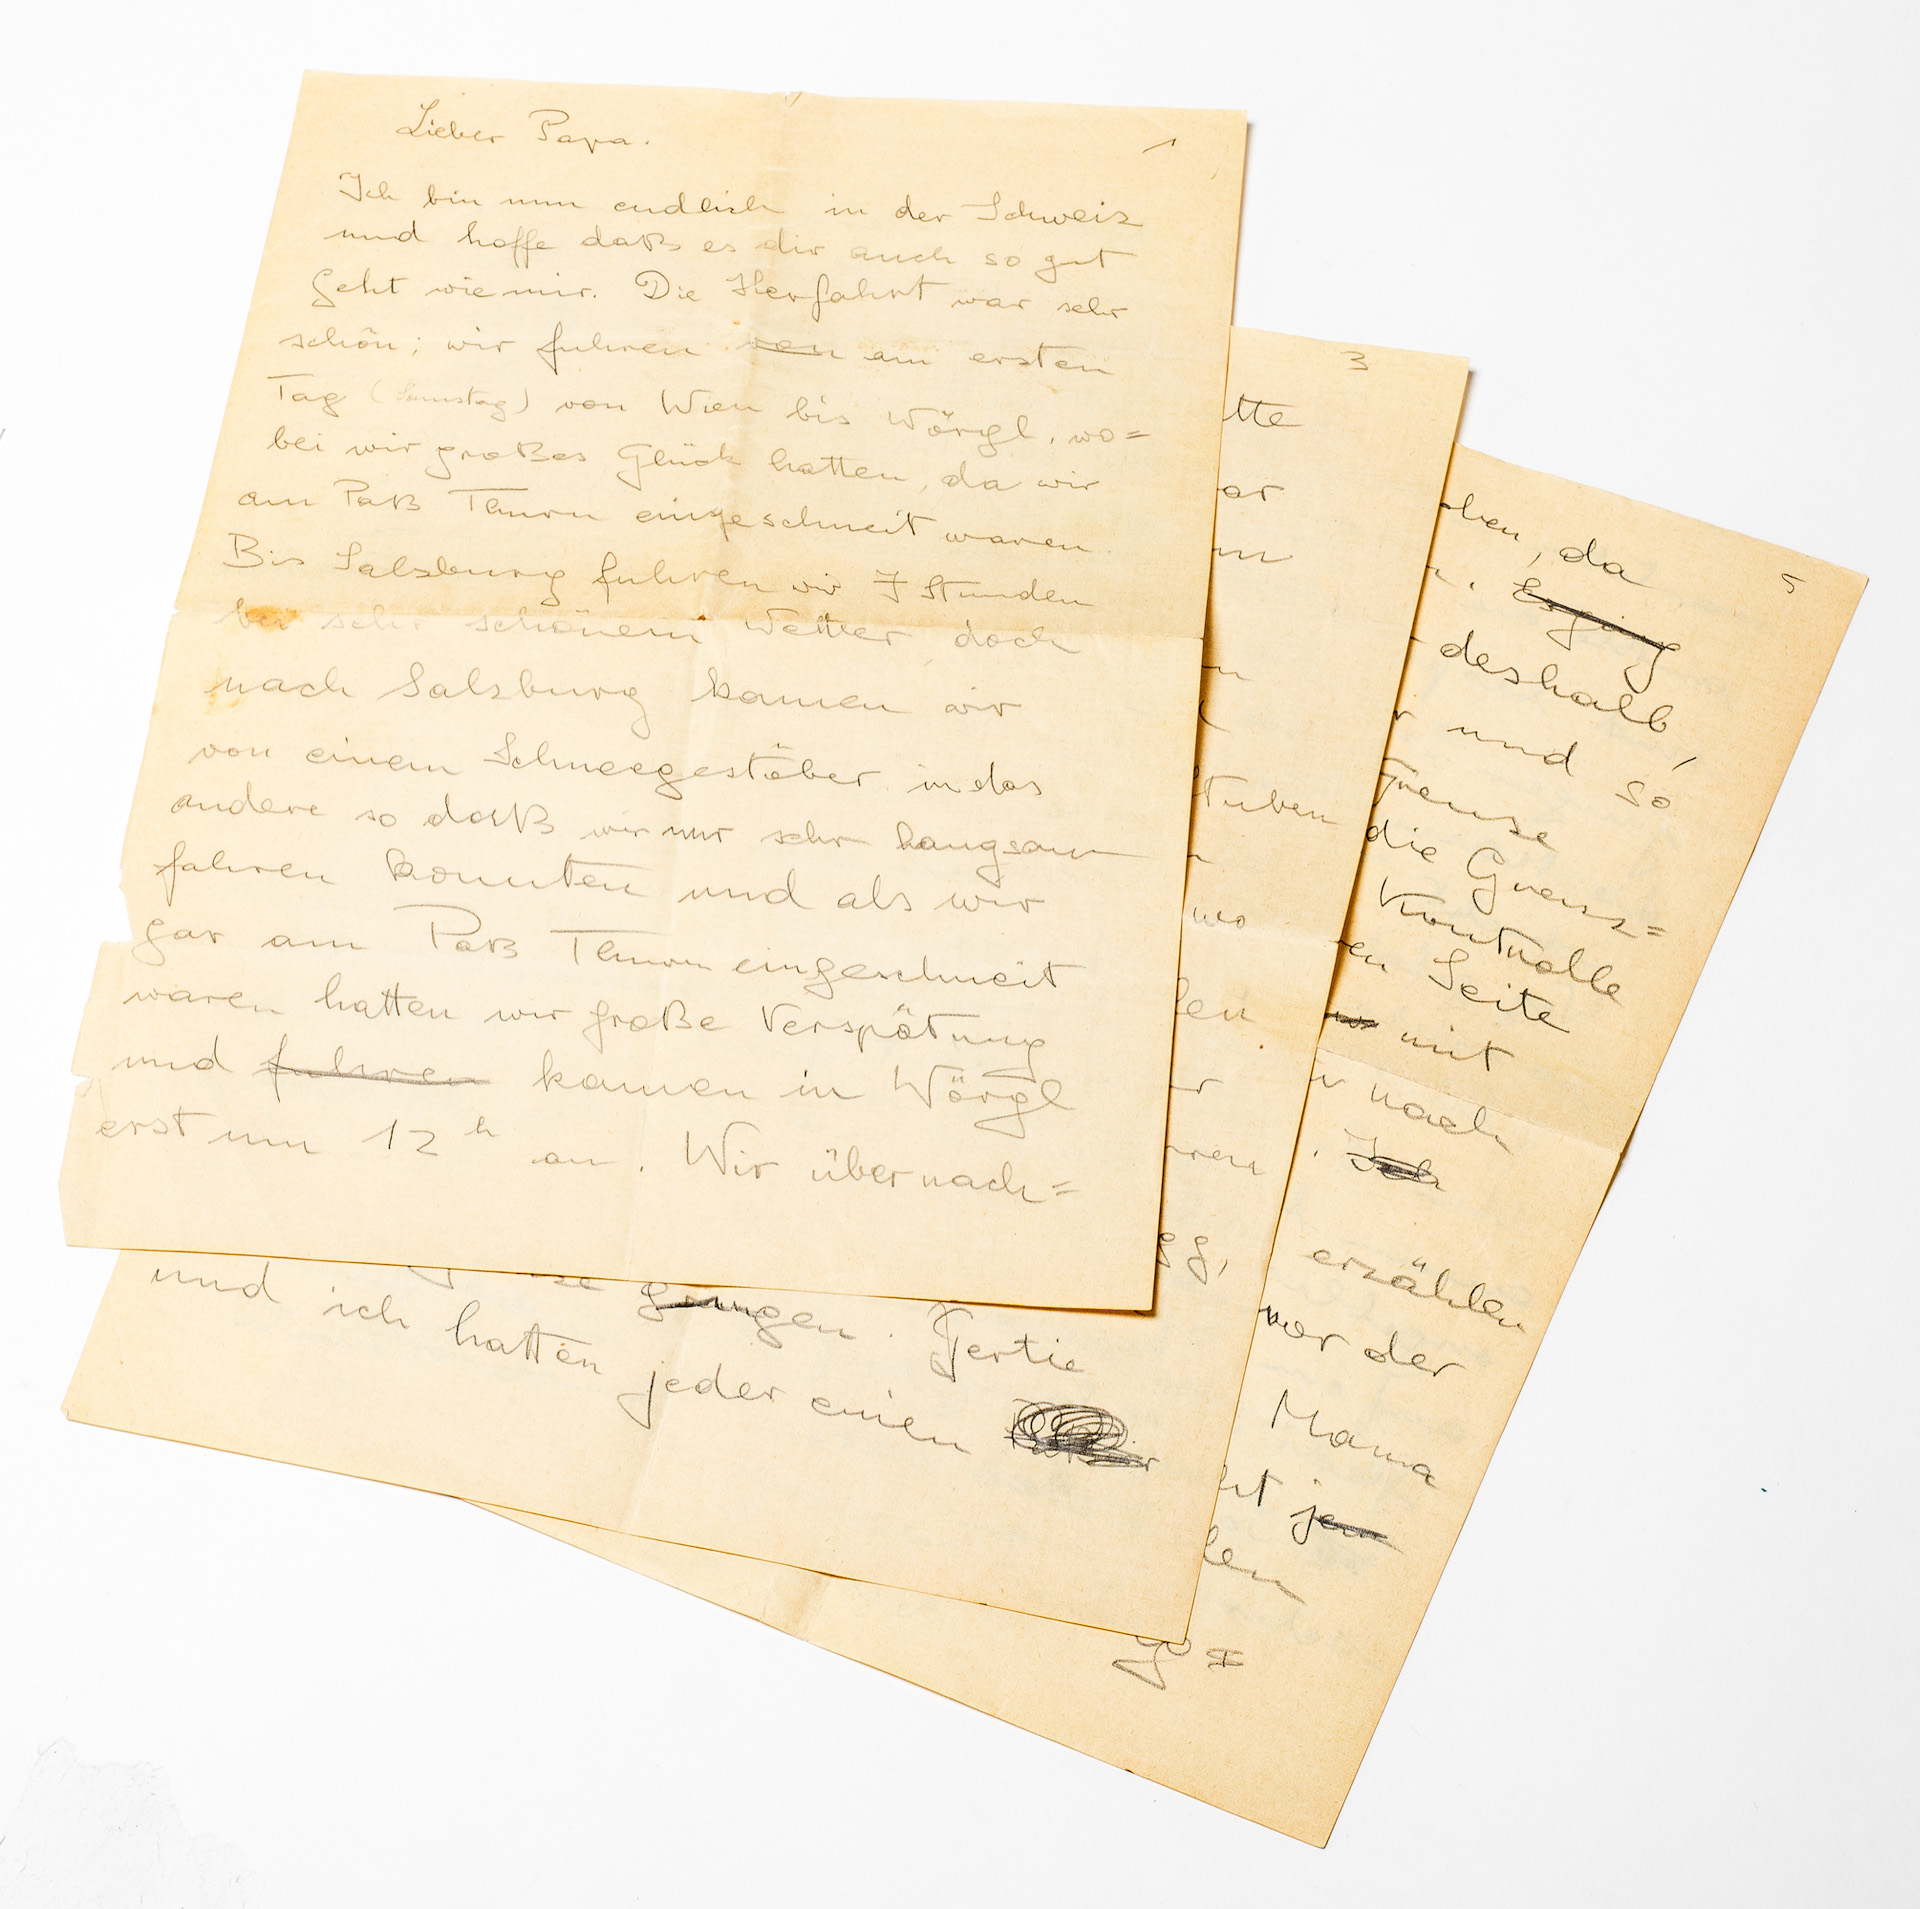 Lieber Papa.
1
Ich bin nun endlich in der Schweiz
und hoffe daß es dir auch so gut
geht wie mir. Die Herfahrt war sehr
schön; wir fuhren von am ersten
Tag (Samstag) von Wien bis Wörgl, wo=
bei wir großes Glück hatten, da wir
am Paß Thurn eingeschneit waren
Bis Salzburg fuhren wir 7 Stunden
bei sehr schönem Wetter doch
nach Salzburg kamen wir
von einem Schneegestöber in das
andere so daß wir nur sehr langsam
fahren konnten und als wir
gar am Paß Thurn eingeschneit
waren hatten wir große Verspätung
und fuhren kamen in Wörgl
erst um 12 h an. Wir übernach=
3
tte
ar
m
n
tuben
wo
len
r
hren
gg,
gingen. Fertie
und ich hatten jeder einen
5
aben, da
n. Es ging
deshalb,
r und so
Grenze
die Grenz=
Kontrolle
en Seite
mit
nach
. Ich
erzählen
vor der
Mama
ht jem
len
go=